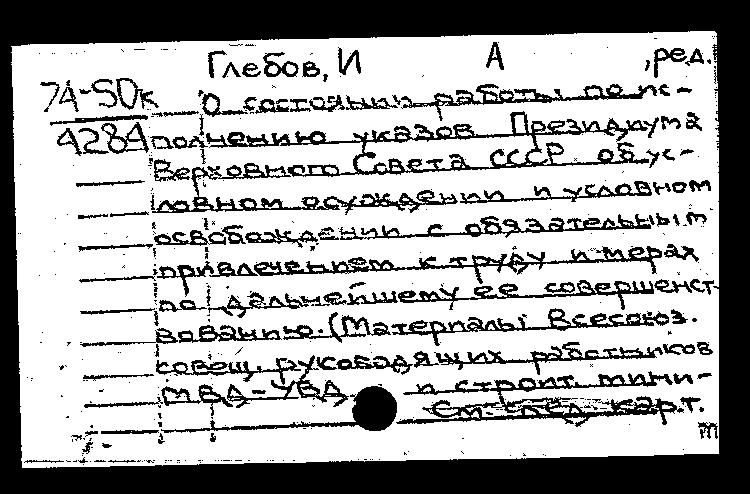 Глебов, И А ,ред.
74-50к О состоянии работы по ис-
4284 полнению указов Президиума
Верховного Совета СССР об ус-
ловном осуждении и условном
освобождении с обязательным
привлечением к труду и мерах
по дальнейшему ее совершенст-
вованию. (Материалы Всесоюз.
совещ. руководящих работников
МВД-УВД и строит. мини-
См. след. карт.
т